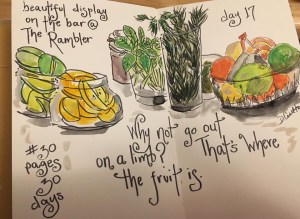 beautiful display
on the bar @
The Rambler
day 17
#30
pages
30
days
Why not go out
on a limb? That's where
the fruit is.